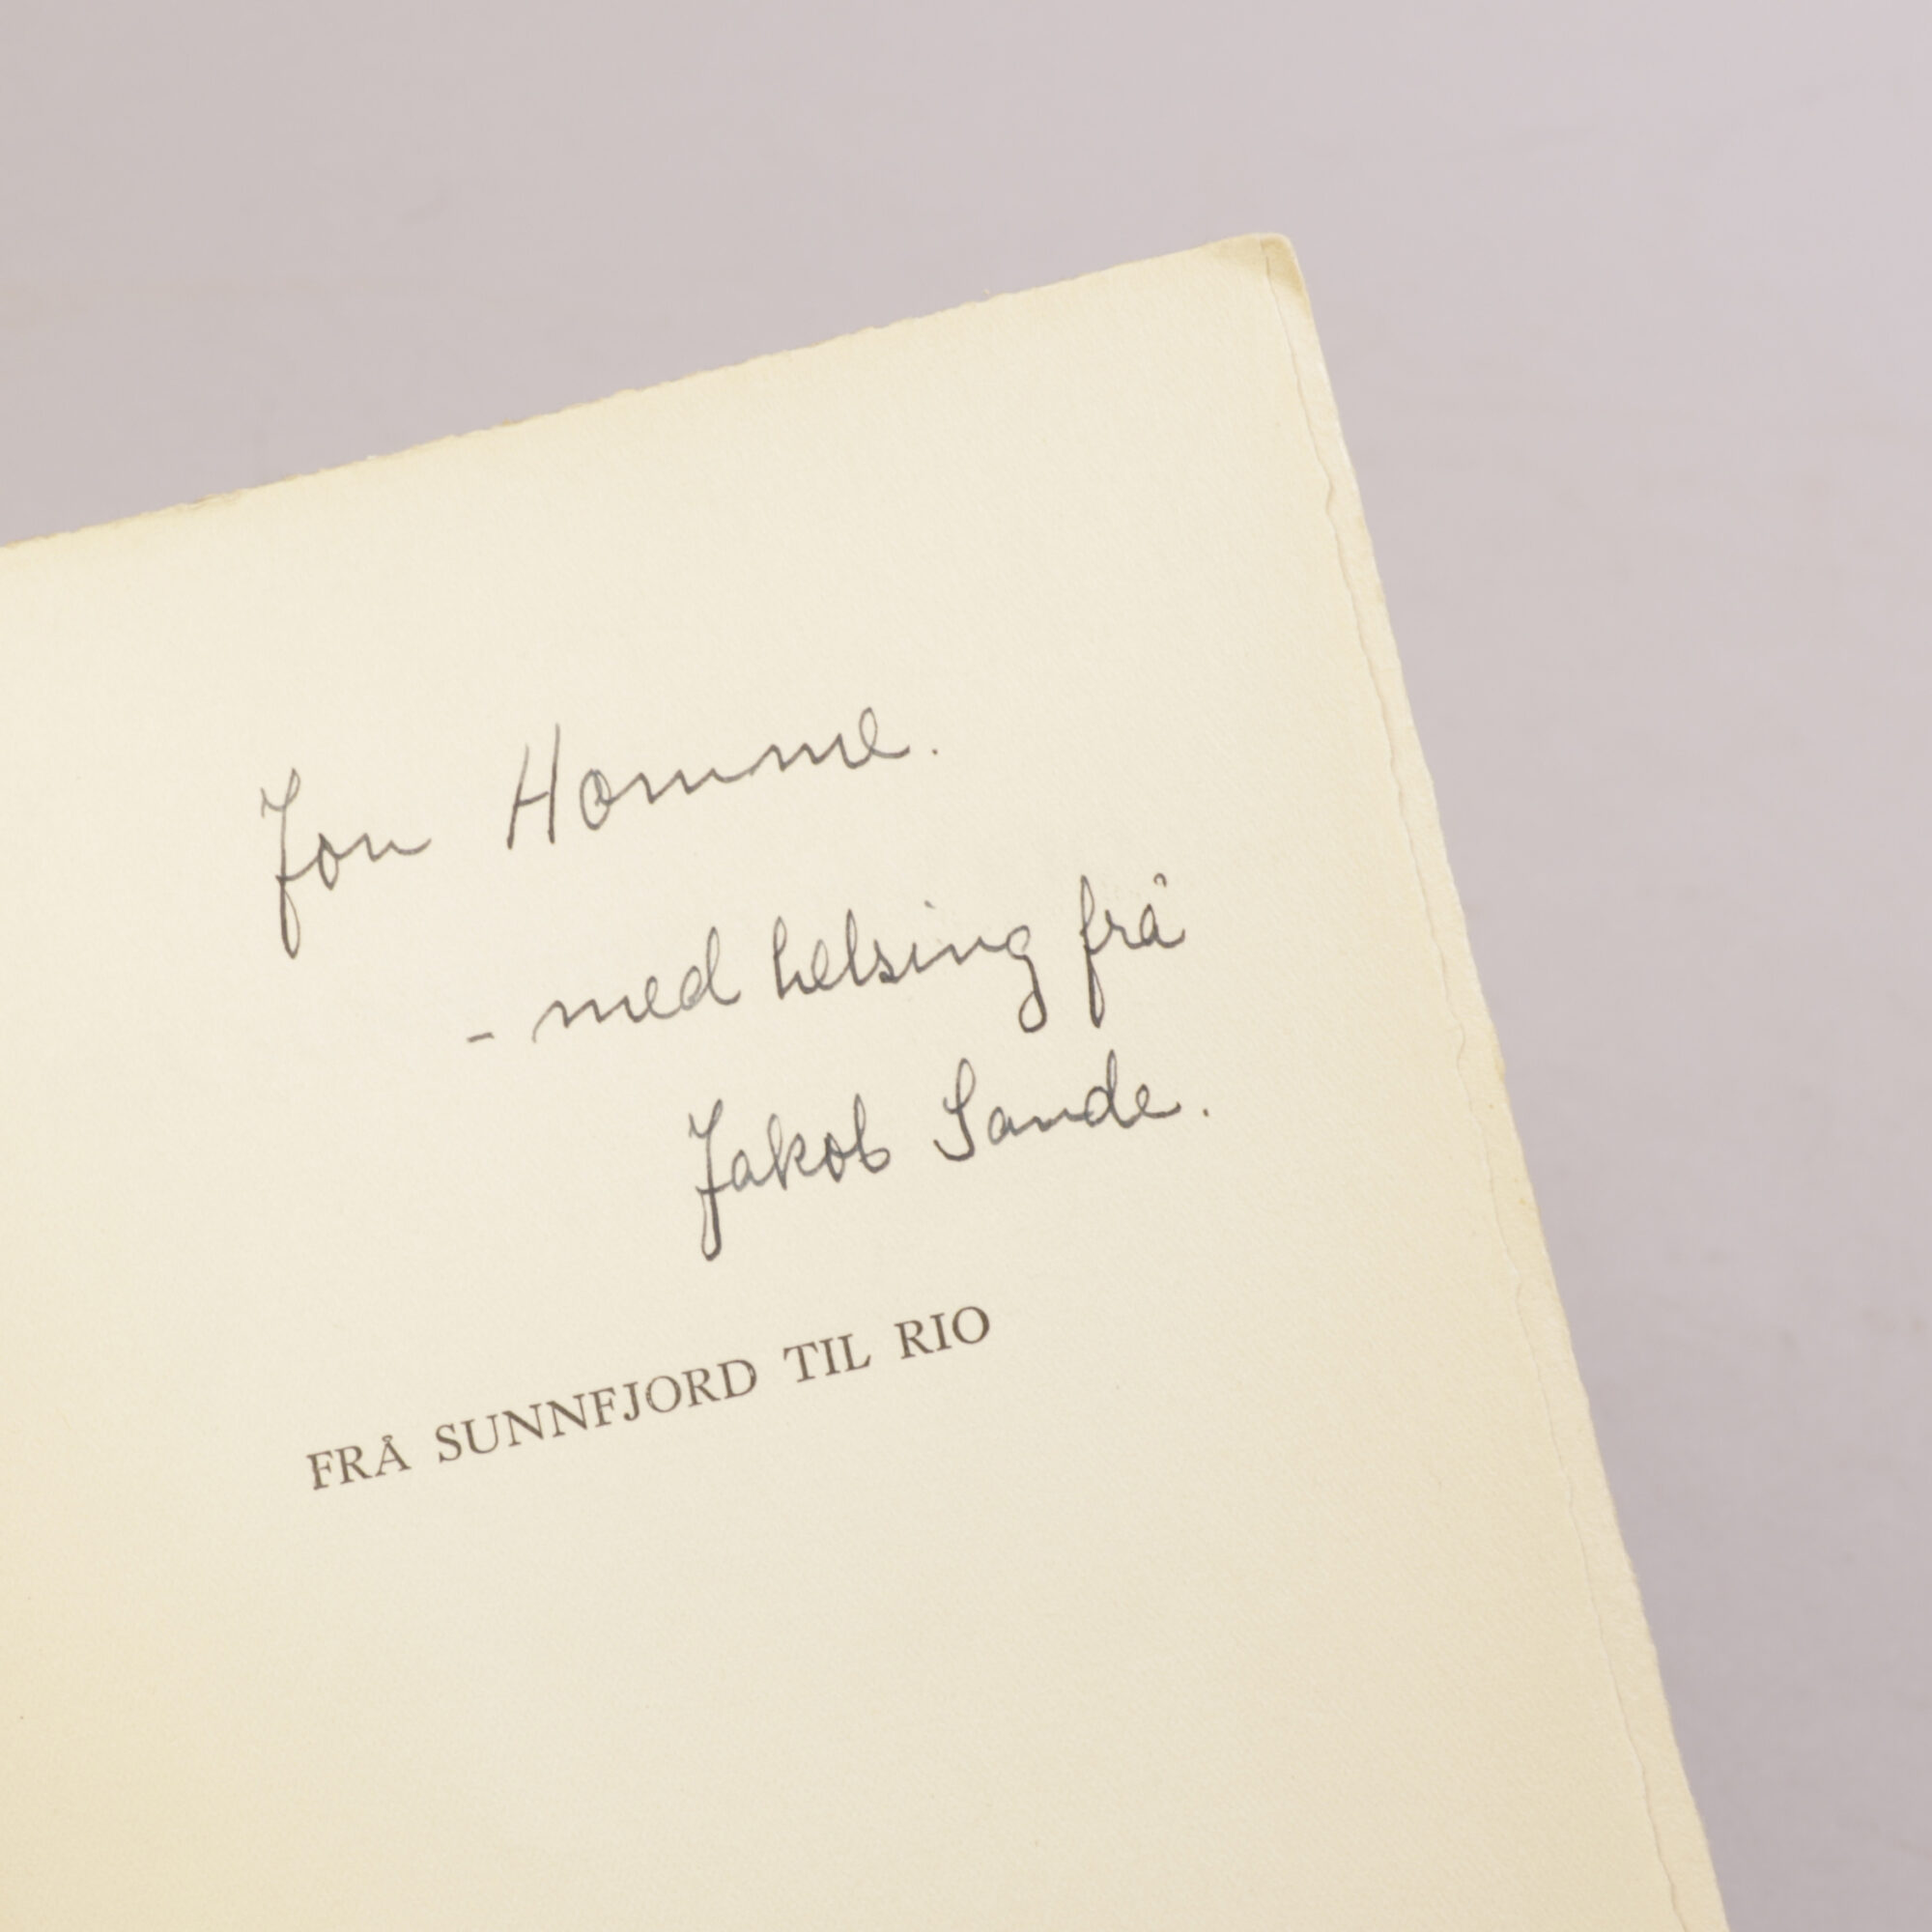 Jon Homme.
- med helsing frå
Jakob Sande.
FRÅ SUNNFJORD TIL RIO